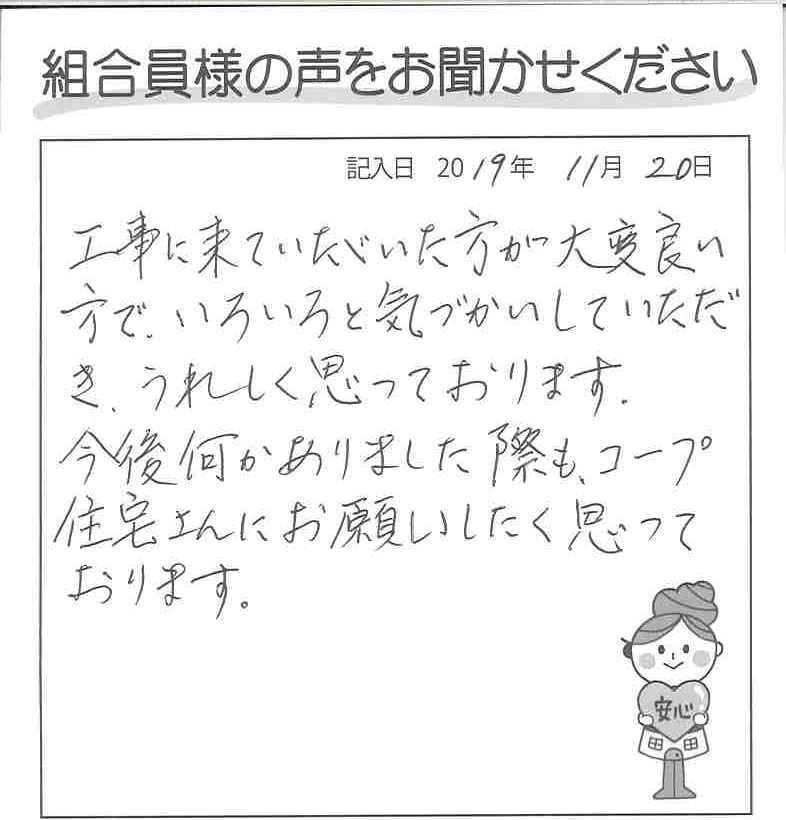 組合員様の声をお聞かせください
記入日 2019年 11月 20日
工事に来ていただいた方が大変良い
方で、いろいろと気づかいしていただ
き、うれしく思っております。
今後何かありました際も、コープ
住宅さんにお願いしたく思って
おります。
安心